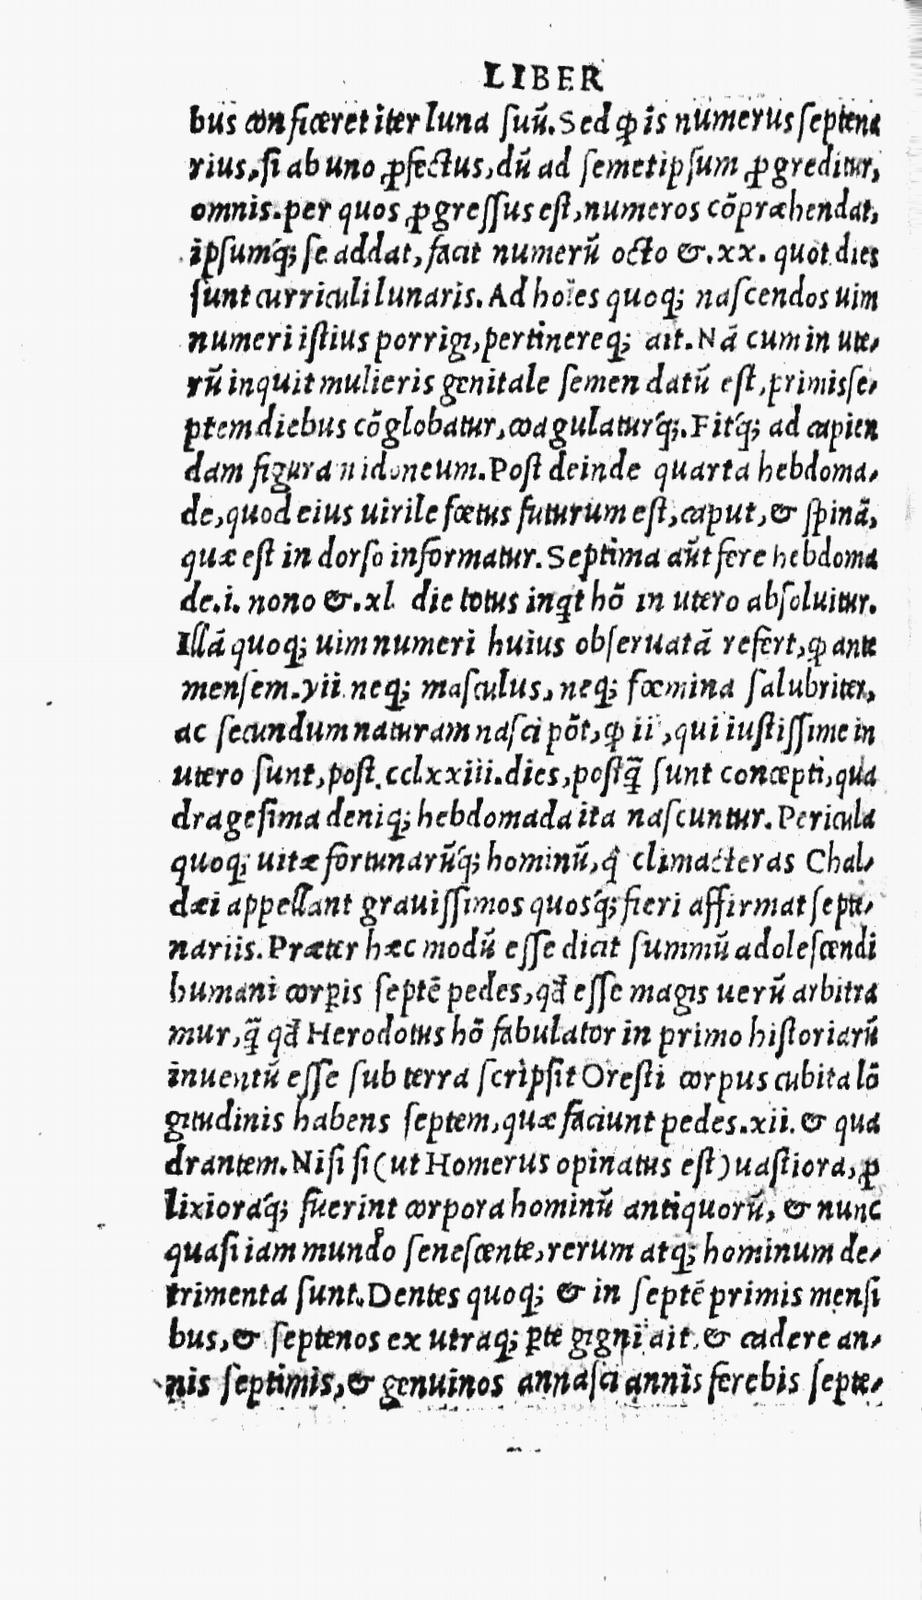 LIBER
bus conficeret iter luna ſuū. Sed ꝙ is numerus ſeptena
rius, ſi ab uno ꝓfectus, dū ad ſemetipſum ꝓgreditur,
omnis. per quos ꝓgreſſus eſt, numeros cōpræhendat,
ipſumq́; ſe addat, facit numerū octo &. xx. quot dies
ſunt curriculi lunaris. Ad hoīes quoq; naſcendos uim
numeri iſtius porrigi, pertinereq; ait. Nā cum in ute-
rū inquit mulieris genitale ſemen datū eſt, primis ſe-
ptem diebus cōglobatur, coagulaturq́;. Fitq́; ad capien
dam figuram idoneum. Poſt deinde quarta hebdoma-
de, quod eius uirile fœtus futurum eſt, caput, & ſpinā,
quæ eſt in dorſo informatur. Septima aūt fere hebdoma
de. i. nono &. xl die totus inqt hō in utero abſoluitur.
Illā quoq; uim numeri huius obſeruatā refert, ꝙ ante
menſem. vii neq; maſculus, neq; fœmina ſalubriter,
ac ſecundum naturam naſci pōt, ꝙ ii, qui iuſtiſſime in
utero ſunt, poſt. cclxxiii. dies, poſtq̃ ſunt concepti, qua
drageſima deniq; hebdomada ita naſcuntur. Pericula
quoq; uitæ fortunarūq́; hominū, q̃ climacteras Chal-
dæi appellant grauiſſimos quoſq́; fieri affirmat ſepte-
nariis. Præter hæc modū eſſe dicit ſummū adoleſcendi
humani corꝑis ſeptē pedes, qđ eſſe magis uerū arbitra
mur, q̃ qđ Herodotus hō fabulator in primo hiſtoriarū
inuentū eſſe ſub terra ſcripſit Oreſti corpus cubita lō
gitudinis habens ſeptem, quæ faciunt pedes. xii. & qua
drantem. Niſi ſi (ut Homerus opinatus eſt) uaſtiora, ꝓ
lixioraq́; fuerint corpora hominū antiquorū, & nunc
quaſi iam mundo ſeneſcente, rerum atq; hominum de-
trimenta ſunt. Dentes quoq; & in ſeptē primis menſi
bus, & ſeptenos ex utraq; ꝑte gigni ait, & cadere an-
nis ſeptimis, & genuinos annaſci annis fere bis ſepte-